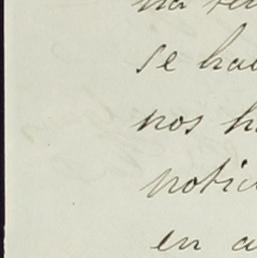 se ha
nos h
notic
en a